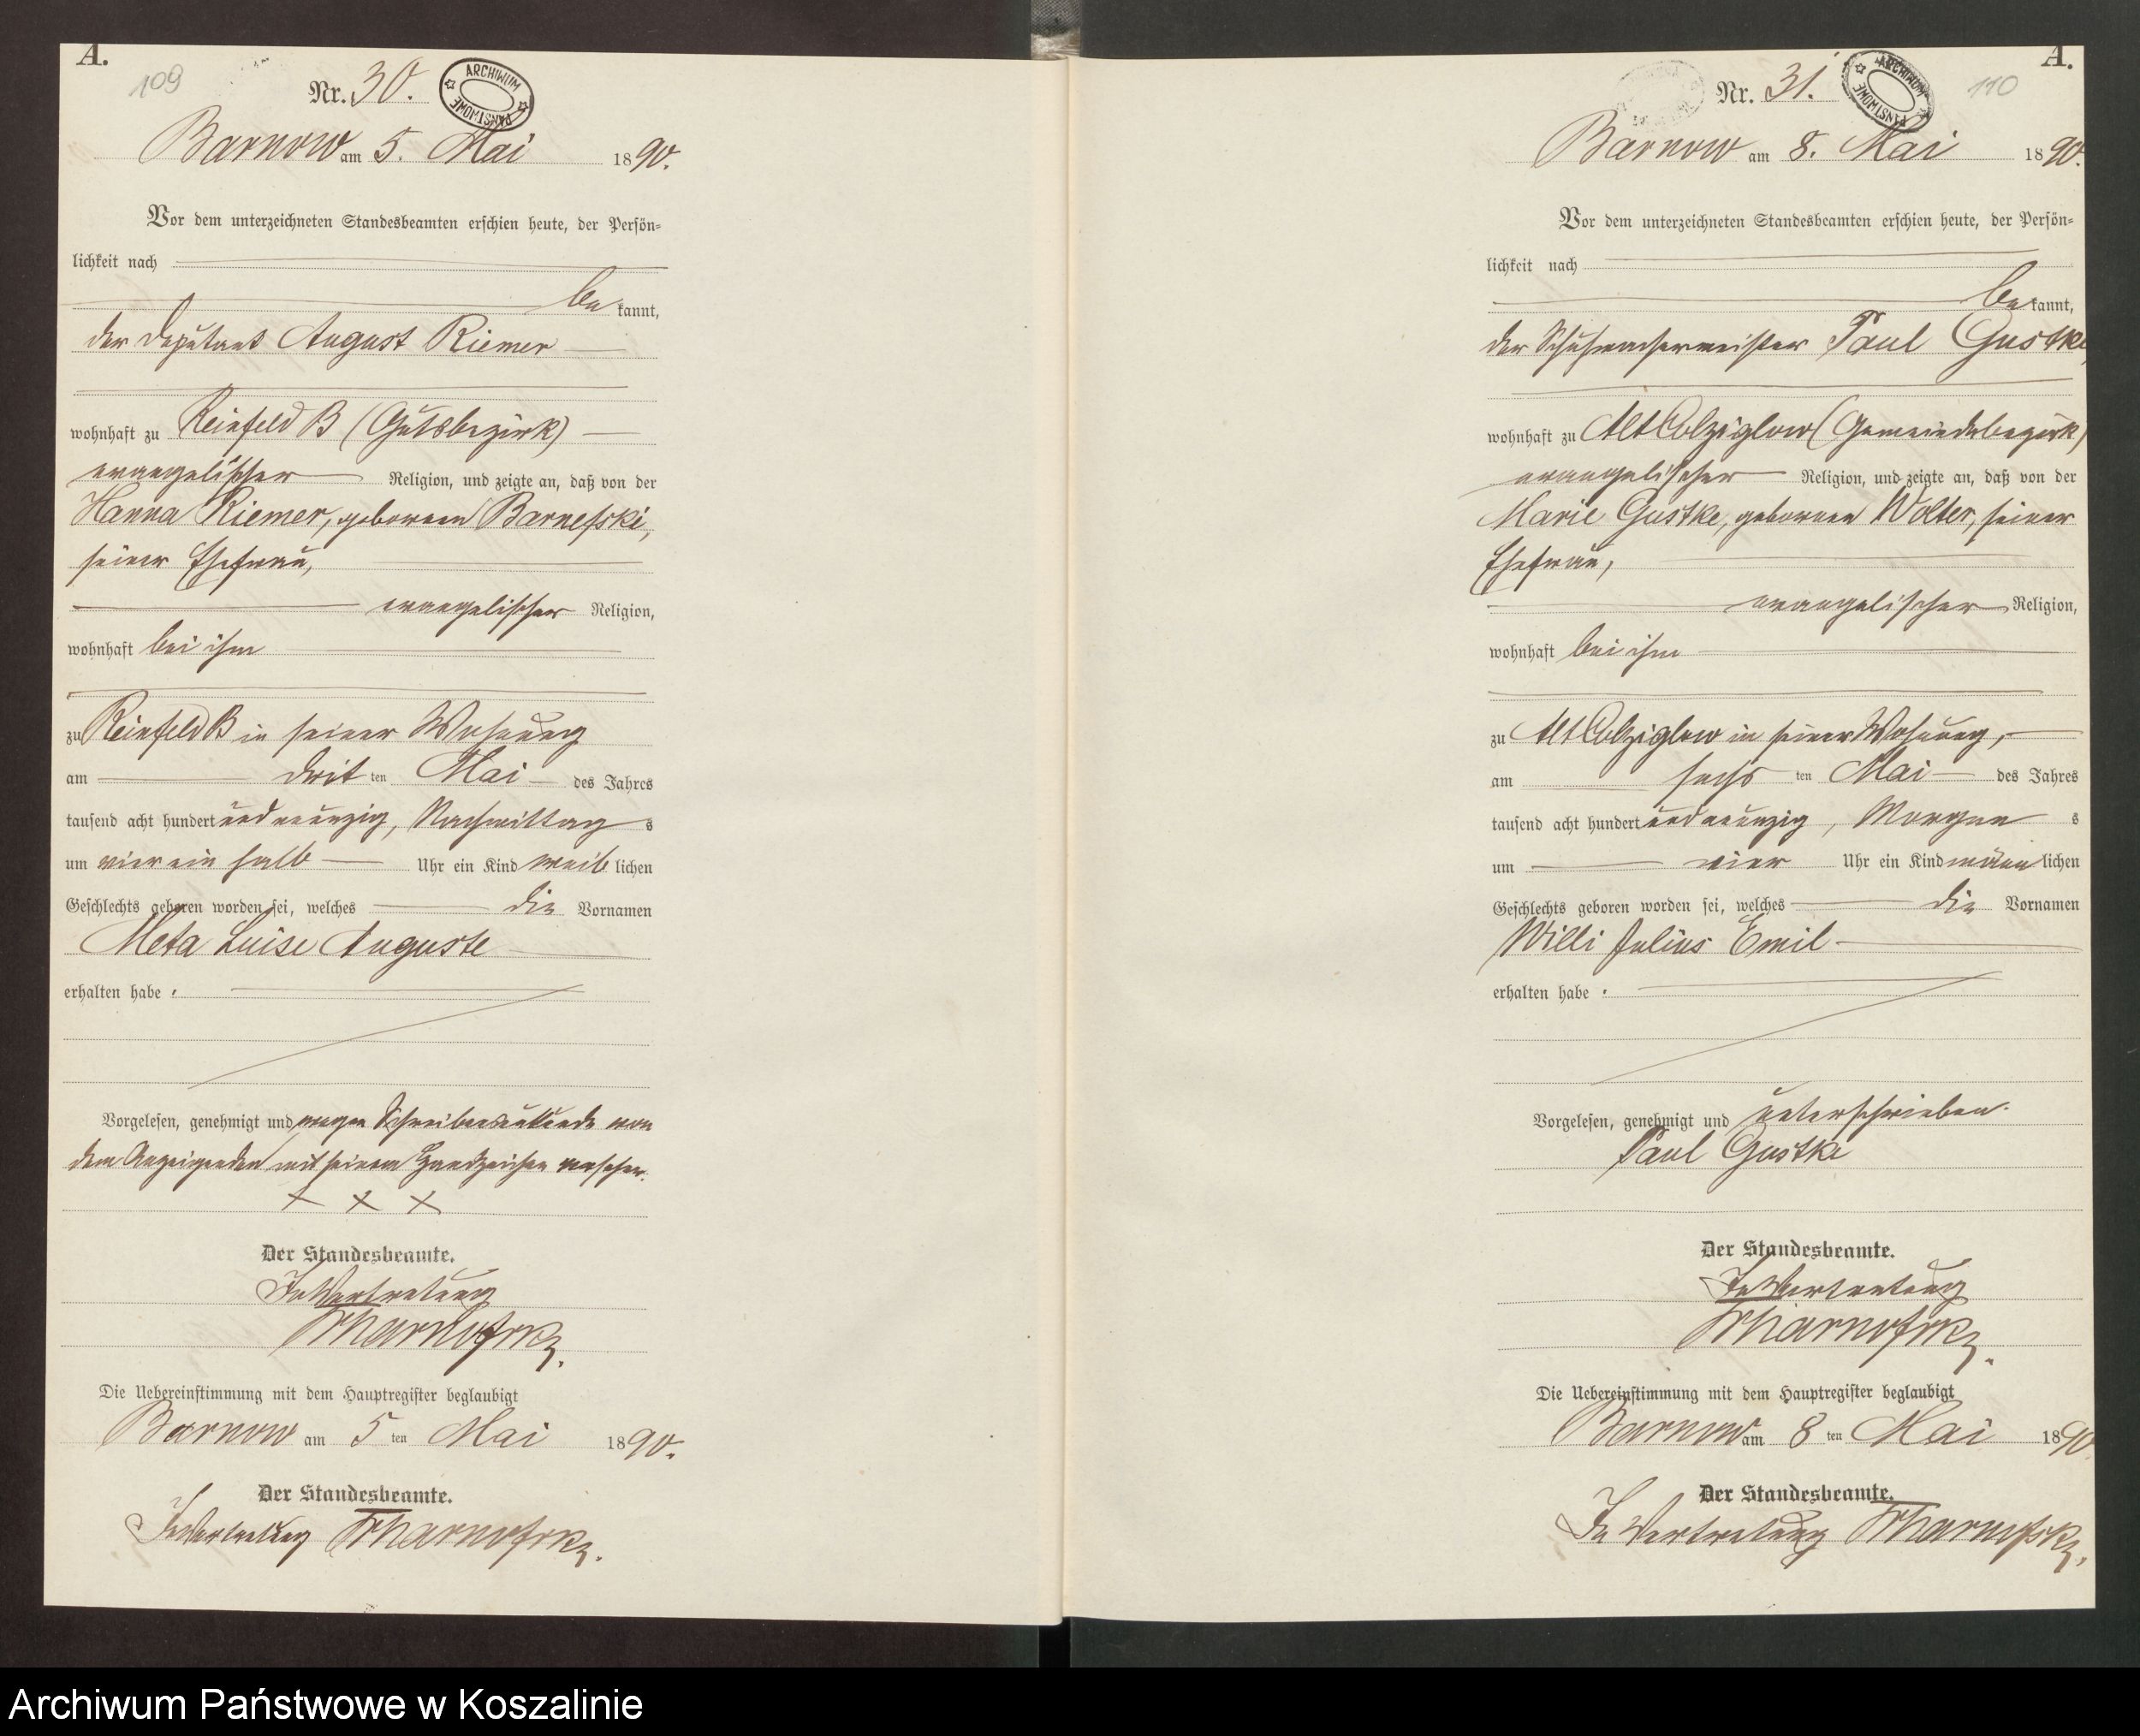 A.
109
Nr. 30.
ARCHIWUM PAŃSTWOWE
Barnow am 5. Mai 1890.
Vor dem unterzeichneten Standesbeamten erschien heute, der Persön-
lichkeit nach
be kannt,
der Deputant August Riemer
wohnhaft zu Reinfeld B (Gutsbezirk)
evangelischer Religion, und zeigte an, daß von der
Hanna Riemer, geborenen Barnefski,
seiner Ehefrau,
evangelischer Religion,
wohnhaft bei ihm
zu Reinfeld B in seiner Wohnung
am drit ten Mai des Jahres
tausend acht hundert und neunzig, Nachmittag s
um vier ein halb Uhr ein Kind weib lichen
Geschlechts geboren worden sei, welches die Vornamen
Meta Luise Auguste
erhalten habe .
Vorgelesen, genehmigt und wegen Schreibensunkunde von
dem Anzeigenden mit seinem Handzeichen versehen.
+ + +
Der Standesbeamte.
In Vertretung
Die Uebereinstimmung mit dem Hauptregister beglaubigt
Barnow am 5 ten Mai 1890.
Der Standesbeamte.
In Vertretung
A.
110
Nr. 31.
ARCHIWUM PAŃSTWOWE
Barnow am 8. Mai 1890.
Vor dem unterzeichneten Standesbeamten erschien heute, der Persön-
lichkeit nach
be kannt,
der Schuhmachermeister Paul Gustke,
wohnhaft zu Alt Colziglow (Gemeindebezirk)
evangelischer Religion, und zeigte an, daß von der
Marie Gustke, geborenen Wolter, seiner
Ehefrau,
evangelischer Religion,
wohnhaft bei ihm
zu Alt Colziglow in seiner Wohnung,
am sechs ten Mai des Jahres
tausend acht hundert und neunzig, Morgen s
um vier Uhr ein Kind männ lichen
Geschlechts geboren worden sei, welches die Vornamen
Willi Julius Emil
erhalten habe .
Vorgelesen, genehmigt und unterschrieben.
Paul Gustke
Der Standesbeamte.
In Vertretung
Die Uebereinstimmung mit dem Hauptregister beglaubigt
Barnow am 8 ten Mai 1890.
Der Standesbeamte.
In Vertretung
Archiwum Państwowe w Koszalinie